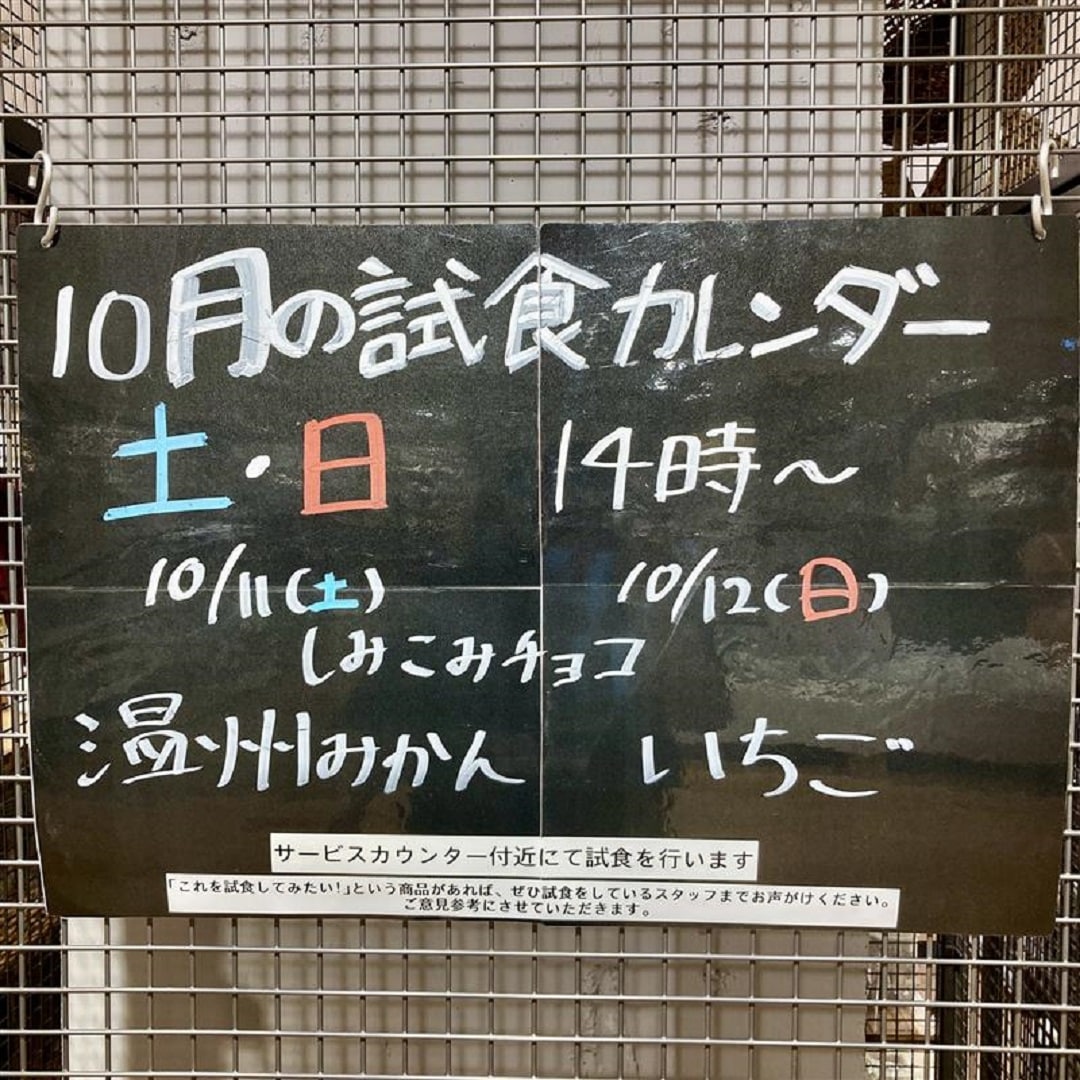 10月の試食カレンダー
土・日 14時〜
10/11(土) 10/12(日)
しみこみチョコ
温州みかん いちご
サービスカウンター付近にて試食を行います
「これを試食してみたい！」という商品があれば、ぜひ試食をしているスタッフまでお声がけください。
ご意見参考にさせていただきます。